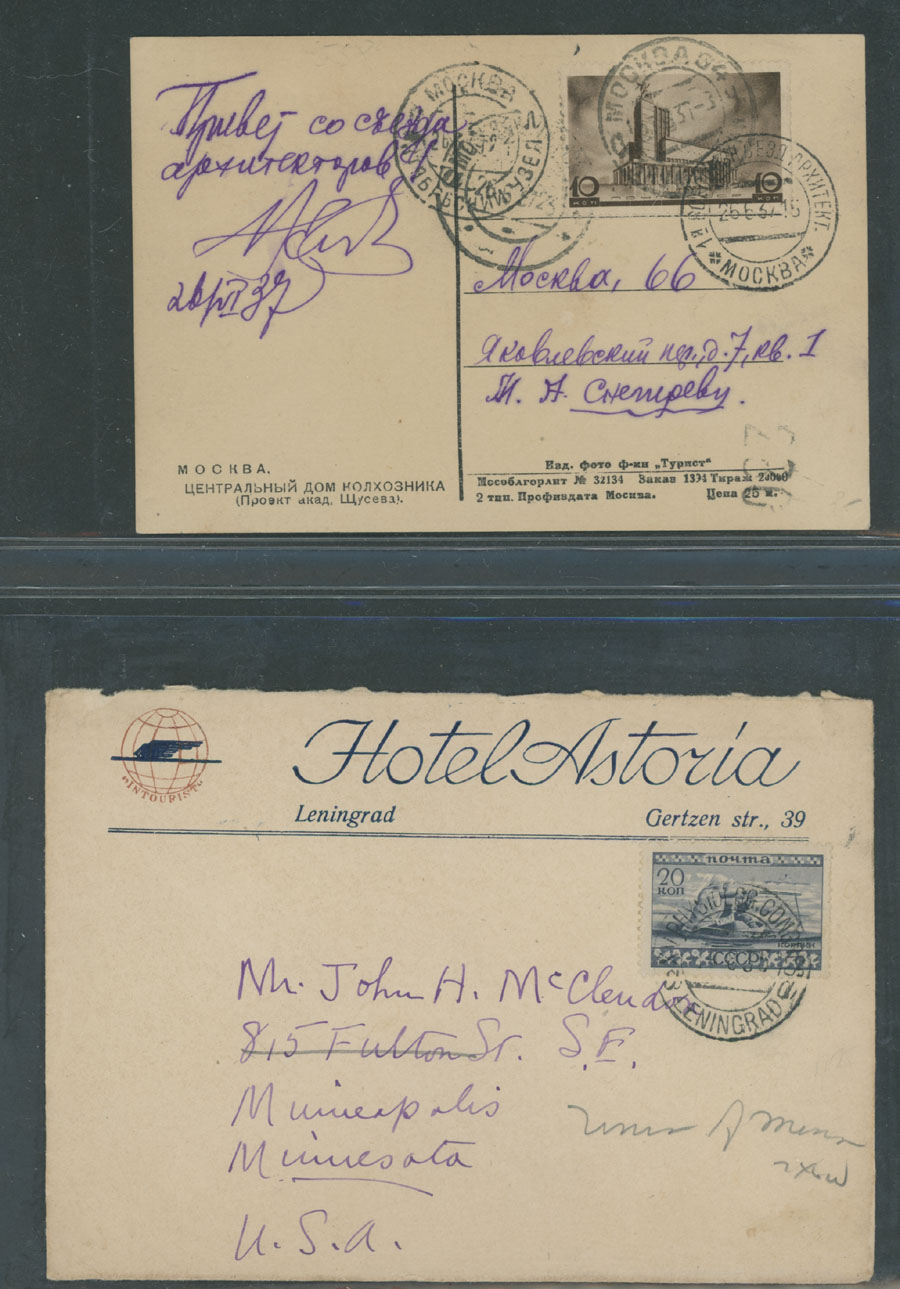 Привет со съезда
архитекторов!
26/VI 37
МОСКВА
МОСКВА
10 КОП
10 КОП
АРХИТЕКТ.
26 6 37 16
* МОСКВА *
Москва, 66
Яковлевский пер., д. 7, кв. 1
И. А. Снегиреву.
МОСКВА.
ЦЕНТРАЛЬНЫЙ ДОМ КОЛХОЗНИКА
(Проэкт акад. Щусева).
Изд. фото ф-ки „Турист“
Мособлгорлит № 32134 Заказ 1394 Тираж 20000
2 тип. Профиздата Москва. Цена 25 к.
INTOURIST
Hotel Astoria
Leningrad Gertzen str., 39
почта
20
коп
СССР
LENINGRAD
Mr. John H. McClend
815 Fulton St. S.E.
Minneapolis
Minnesota
U.S.A.